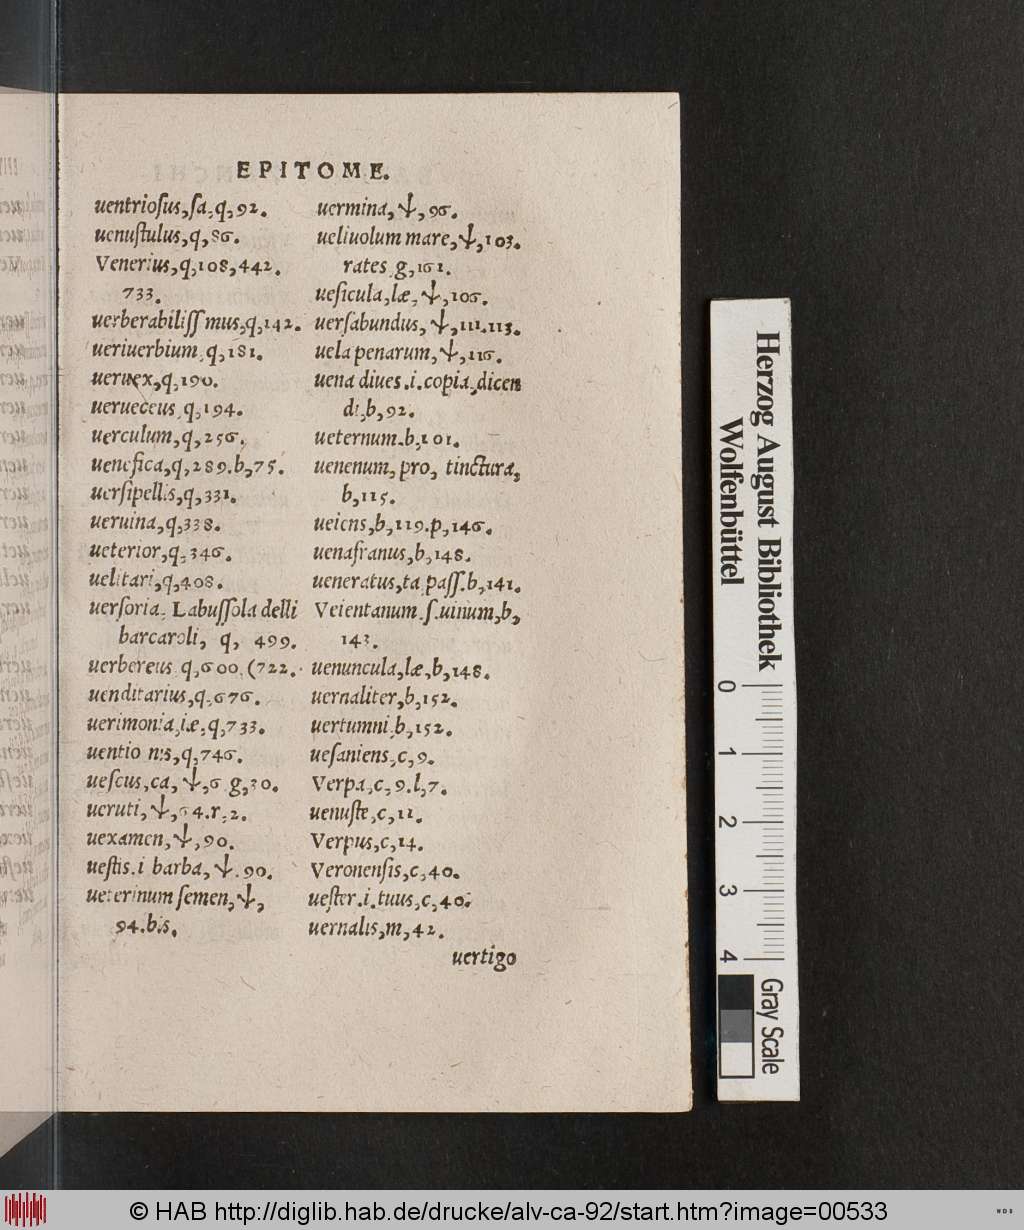 EPITOME.
uentriosus,sa,q,92.
uenustulus,q,86.
Venerius,q,108,442.
733.
uerberabiliss mus,q,142.
ueriuerbium,q,181.
ueruex,q,190.
uerueceus,q,194.
uerculum,q,256.
uenefica,q,289.b,75.
uersipellis,q,331.
ueruina,q,338.
ueterior,q,346.
uelitari,q,408.
uersoria, Labussola delli
barcaroli, q, 499.
uerbereus,q,600.(722.
uenditarius,q,676.
uerimonia,iæ,q,733.
uentio nis,q,746.
uescus,ca, ψ,6 g,30.
ueruti, ψ,64.r,2.
uexamen,ψ,90.
uestis.i barba, ψ.90.
ueterinum semen,ψ,
94.bis.
uermina,ψ,96.
ueliuolum mare,ψ,103.
rates g,161.
uesicula,læ, ψ,106.
uersabundus, ψ,111.113.
uela penarum,ψ,116.
uena diues.i.copia,dicen
di,b,92.
ueternum.b,101.
uenenum, pro, tinctura,
b,115.
ueiens,b,119.p,146.
uenafranus,b,148.
ueneratus,ta pass.b,141.
Veientanum.s.uinum,b,
143.
uenuncula,læ,b,148.
uernaliter,b,152.
uertumni b,152.
uesaniens,c,9.
Verpa,c,9.l,7.
uenuste,c,11.
Verpus,c,14.
Veronensis,c,40.
uester.i.tuus,c,40.
uernalis,m,42.
uertigo
Herzog August Bibliothek
Wolfenbüttel
0 1 2 3 4
Gray Scale
© HAB http://diglib.hab.de/drucke/alv-ca-92/start.htm?image=00533